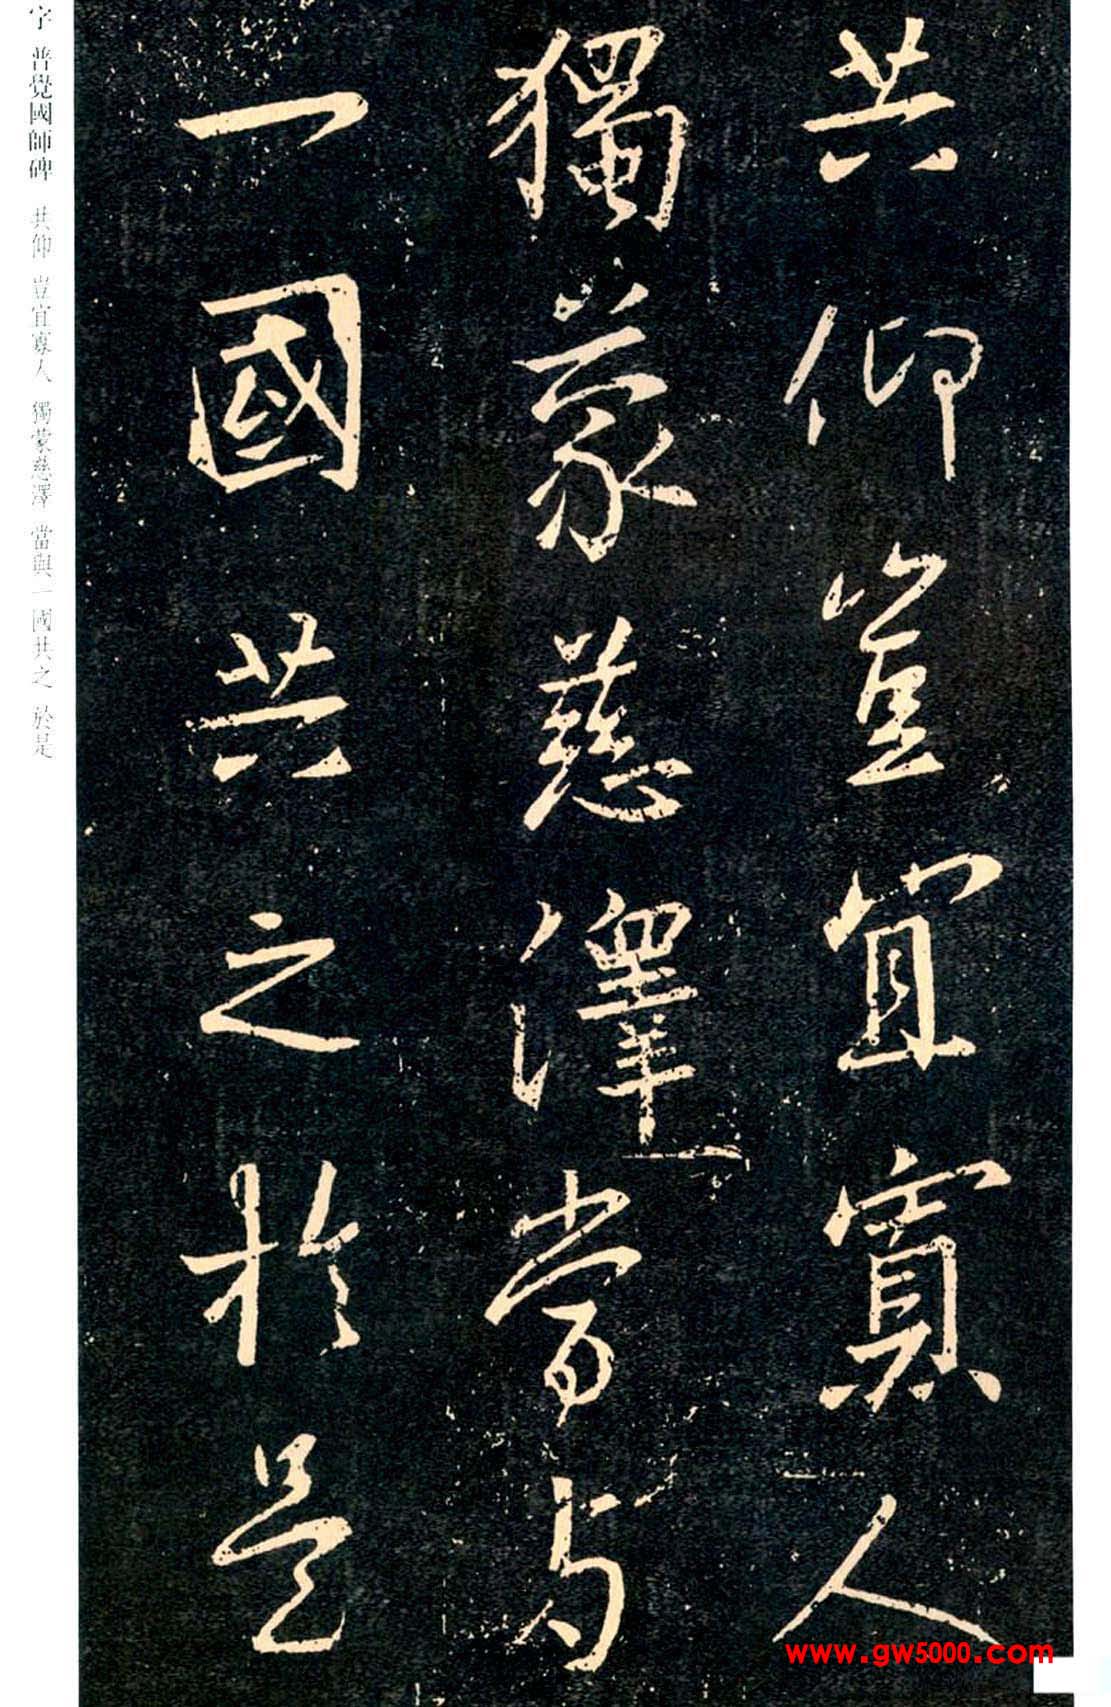 共仰豈宜寡人
獨蒙慈澤當与
一國共之於是
字 普覺國師碑 共仰 豈宜寡人 獨蒙慈澤 當與一國共之 於是
www.gw5000.com